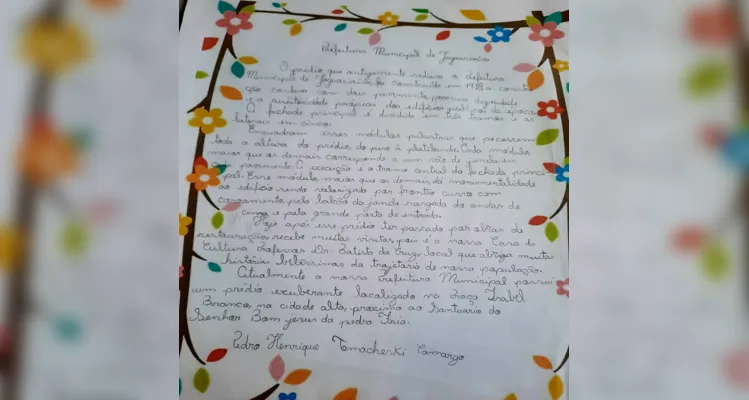 Prefeitura Municipal de Jaguariaíva
O prédio que antigamente sediava a Prefeitura
Municipal de Jaguariaíva foi construído em 1918 a constru
ção contava com dois pavimentos, possuía dignidade
e a austeridade próprias dos edifícios públicos da época.
A fachada principal é dividida em três tramos e as
laterais em cinco.
Enquadram esses módulos pilastras que percorrem
toda a altura do prédio, do piso à platibanda. Cada módulo
maior que os demais corresponde a um vão de janela em
cada pavimento. A exceção é o tramo central da fachada princi
pal. Esse módulo, maior que os demais, dá monumentalidade
ao edifício sendo valorizado por frontão curvo com
coroamento, pelo balcão da janela rasgada do andar de
cima e pela grande porta de entrada.
Hoje após esse prédio ter passado por obras de
restauração, recebe muitas visitas, pois é a nossa Casa da
Cultura Professor Dr. Batista da Cruz, local que abriga muita
histórias belíssimas da trajetória de nossa população.
Atualmente a nossa Prefeitura Municipal possui
um prédio exuberante localizado na Praça Isabel
Branco, na cidade alta, próximo ao Santuário do
Senhor Bom Jesus da pedra Fria.
Pedro Henrique Tomacheski Camargo